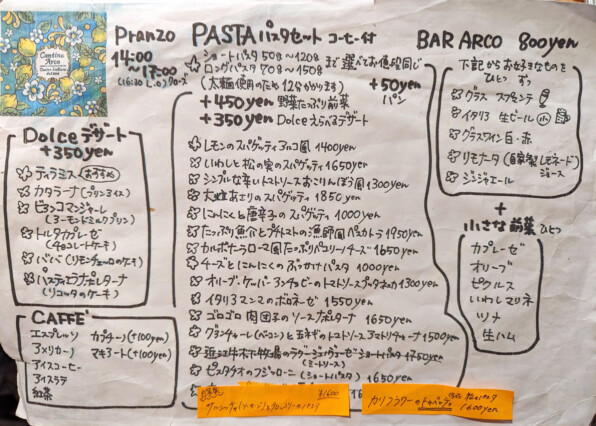 Cantina
Arco
Pranzo
14:00
〜17:00
(16:30 L.o)クローズ
Dolce デザート
+350yen
ティラミス おすすめ
カタラーナ(プリンアイス)
ビアンコマンジャーレ
(アーモンドミルクプリン)
トルタカプレーゼ
(チョコレートケーキ)
ババ(リモンチェッロのケーキ)
パスティエラナポレターナ
(リコッタのケーキ)
CAFFE'
エスプレッソ
カプチーノ(+100yen)
アメリカーノ
マキアート(+100yen)
アイスコーヒー
アイスラテ
紅茶
PASTA パスタセット コーヒー付
ショートパスタ 50g〜120g
ロングパスタ 70g〜150g
まで選べてお値段同じ
(太麺使用のため12分かかります)
+50yen
パン
+450yen 野菜たっぷり前菜
+350yen Dolceえらべるデザート
レモンのスパゲッティアルコ風 1400yen
いわしと松の実のスパゲッティ 1650yen
シンプルな辛いトマトソースおこりんぼう風 1300yen
大粒あさりのスパゲッティ 1850yen
にんにくと唐辛子のスパゲッティ 1000yen
たっぷり魚介とプチトマトの漁師風ペスカトラ 1950yen
カルボナーラローマ風たっぷりペコリーノチーズ 1650yen
チーズとにんにくのぶっかけパスタ 1000yen
オリーブ・ケーパー・アンチョビーのトマトソースプッタネスカ 1300yen
イタリアマンマのボロネーゼ 1550yen
ゴロゴロ肉団子のソースナポレターナ 1650yen
グアンチャーレ(ベーコン)と玉ネギのトマトソースアマトリチャーナ 1500yen
ショートパスタ 1750yen
(ミートソース)
ピスタチオのフジッローニ(ショートパスタ) 1650yen
1650yen
¥1600
カリフラワーの
1600yen
BAR ARCO 800yen
下記からお好きなものを
ひとつずつ
グラススプマンテ
イタリア生ビール 小
グラスワイン白・赤
リモナータ(自家製レモネード)
ジュース
ジンジャエール
+
小さな前菜 ひとつ
カプレーゼ
オリーブ
ピクルス
いわしマリネ
ツナ
生ハム